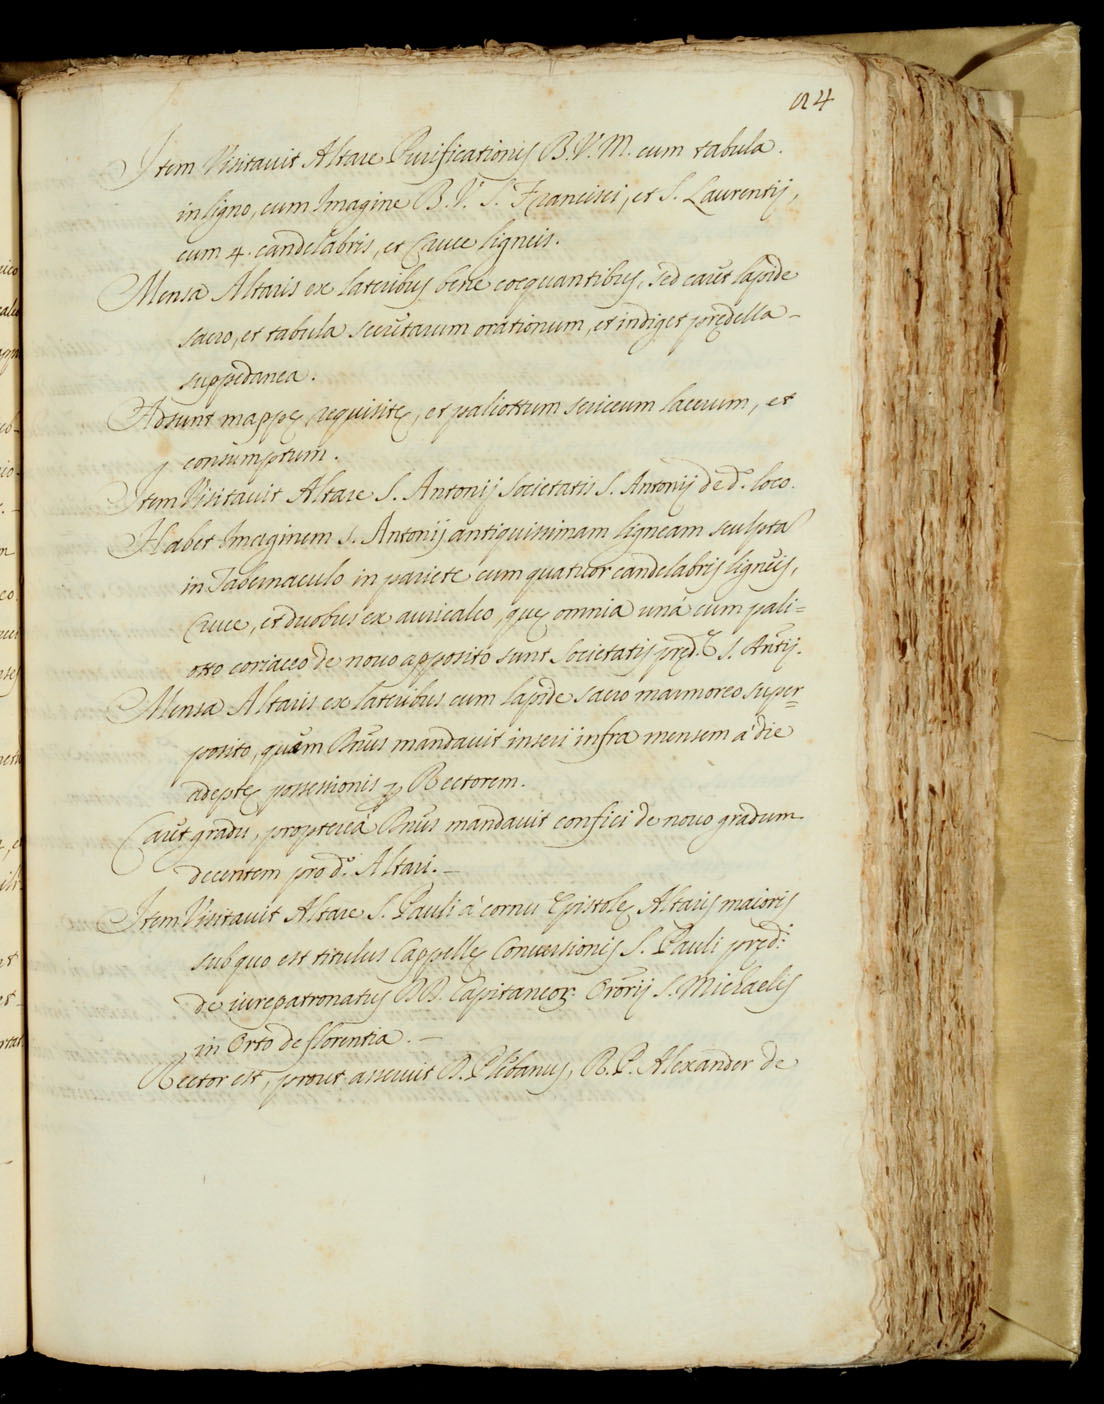 94
Item Visitauit Altare Purificationis B.V.M. cum tabula
in ligno, cum Imagine B.V. S. Francisci, et S. Laurentij,
cum 4. candelabris, et Cruce ligneis.
Mensa Altaris ex lateribus bene coequantibus, sed caret lapide
sacro, et tabula secretarum orationum, et indiget prędella
suppedanea.
Adsunt mappę requisitę, et paliottum sericeum lacerum, et
consumptum.
Item Visitauit Altare S. Antonij Societatis S. Antonij de d.º loco.
Habet Imaginem S. Antonij antiquissimam ligneam sculptã
in Tabernaculo in pariete cum quatuor candelabris ligneis,
Cruce, et duobus ex auricalco, quę omnia unà cum pali=
otto coriaceo de nouo apposito sunt Societatis pręd. S. Antij.
Mensa Altaris ex lateribus cum lapide sacro marmoreo super=
posito, quem Rm̃us mandauit inseri infra mensem à die
adeptę possessionis p Rectorem.
Caret gradu, proptereà Rm̃us mandauit confici de nouo gradum
decentem pro d.º Altari.
Item Visitauit Altare S. Pauli à cornu Epistolę Altaris maioris
sub quo est titulus Cappellę Conuersionis S. Pauli pręd.i
de iurepatronatus DD. Capitaneor. Orãrij S. Michaelis
in Orto de florentia.
Rector est, prout asseruit D. Plebanus, R.P. Alexander de